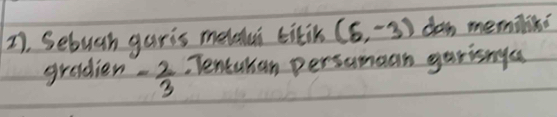 1). Sebuah garis melalui titik (6,-3) dan memiliki
gradien - 2/3. Tentukan persamaan garisnya